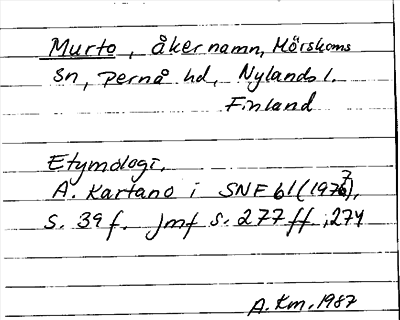 Murto, åkernamn, Mörskoms
sn, Pernå hd, Nylands l.
Finland
Etymologi.
A. Kartano i SNF 61 (1977),
s. 39 f. Jmf s. 277 ff.; 274
A.Km. 1987